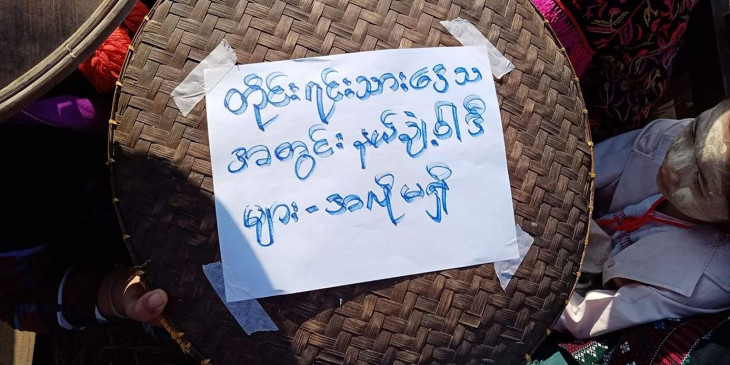 တိုင်းရင်းသားဒေသ
အတွင်း နယ်ချဲ့ဝါဒီ
များ - အလိုမရှိ